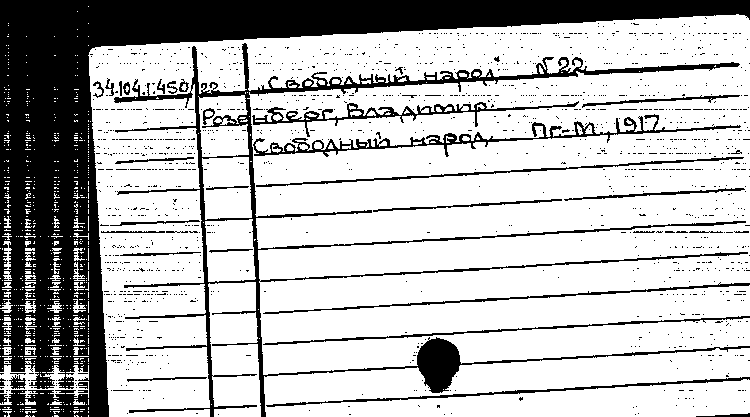 34.104.1:450/22 „Свободный народ" N 22
Розенберг, Владимир.
Свободный народ. Пг-М., 1917.